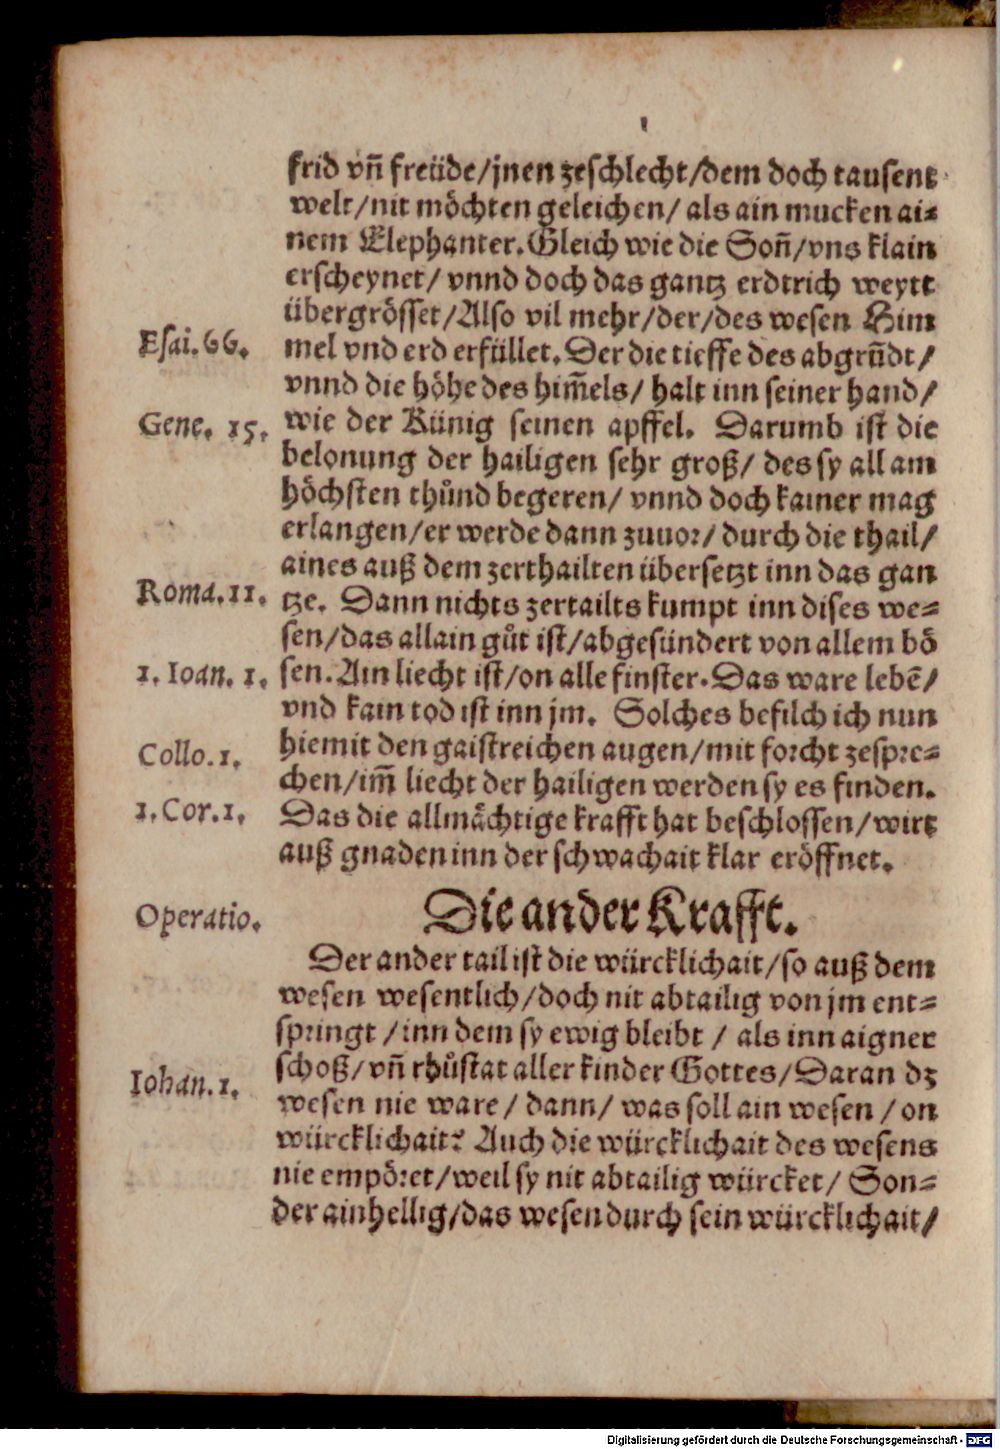 frid vñ freüde/jnen zeschlecht/dem doch tausent
welt/nit möchten geleichen/ als ain mucken ai⸗
nem Elephanter. Gleich wie die Soñ/vns klain
erscheynet/ vnnd doch das gantz erdtrich weytt
übergrösset/Also vil mehr/der/des wesen Him
Esai. 66.
mel vnd erd erfüllet. Der die tieffe des abgrũdt/
vnnd die höhe des him̃els/ halt inn seiner hand/
Gene. 15.
wie der Künig seinen apffel. Darumb ist die
belonung der hailigen sehr groß/ des sy all am
höchsten thůnd begeren/ vnnd doch kainer mag
erlangen/er werde dann zuuor/ durch die thail/
aines auß dem zerthailten übersetzt inn das gan
Roma. 11.
tze. Dann nichts zertailts kumpt inn dises we⸗
sen/das allain gůt ist/abgesündert von allem bö
1. Ioan. 1.
sen. Ain liecht ist/on alle finster. Das ware lebẽ/
vnd kain tod ist inn jm. Solches befilch ich nun
Collo. 1.
hiemit den gaistreichen augen/mit forcht zespre⸗
chen/im̃ liecht der hailigen werden sy es finden.
1. Cor. 1.
Das die allmächtige krafft hat beschlossen/wirt
auß gnaden inn der schwachait klar eröffnet.
Operatio.
Die ander Krafft.
Der ander tail ist die würcklichait/so auß dem
wesen wesentlich/doch nit abtailig von jm ent⸗
springt /inn dem sy ewig bleibt / als inn aigner
Iohan. 1.
schoß/vñ rhůstat aller kinder Gottes/Daran dz
wesen nie ware/ dann/ was soll ain wesen /on
würcklichait? Auch die würcklichait des wesens
nie empöret/weil sy nit abtailig würcket/ Son⸗
der ainhellig/das wesen durch sein würcklichait/
Digitalisierung gefördert durch die Deutsche Forschungsgemeinschaft - DFG